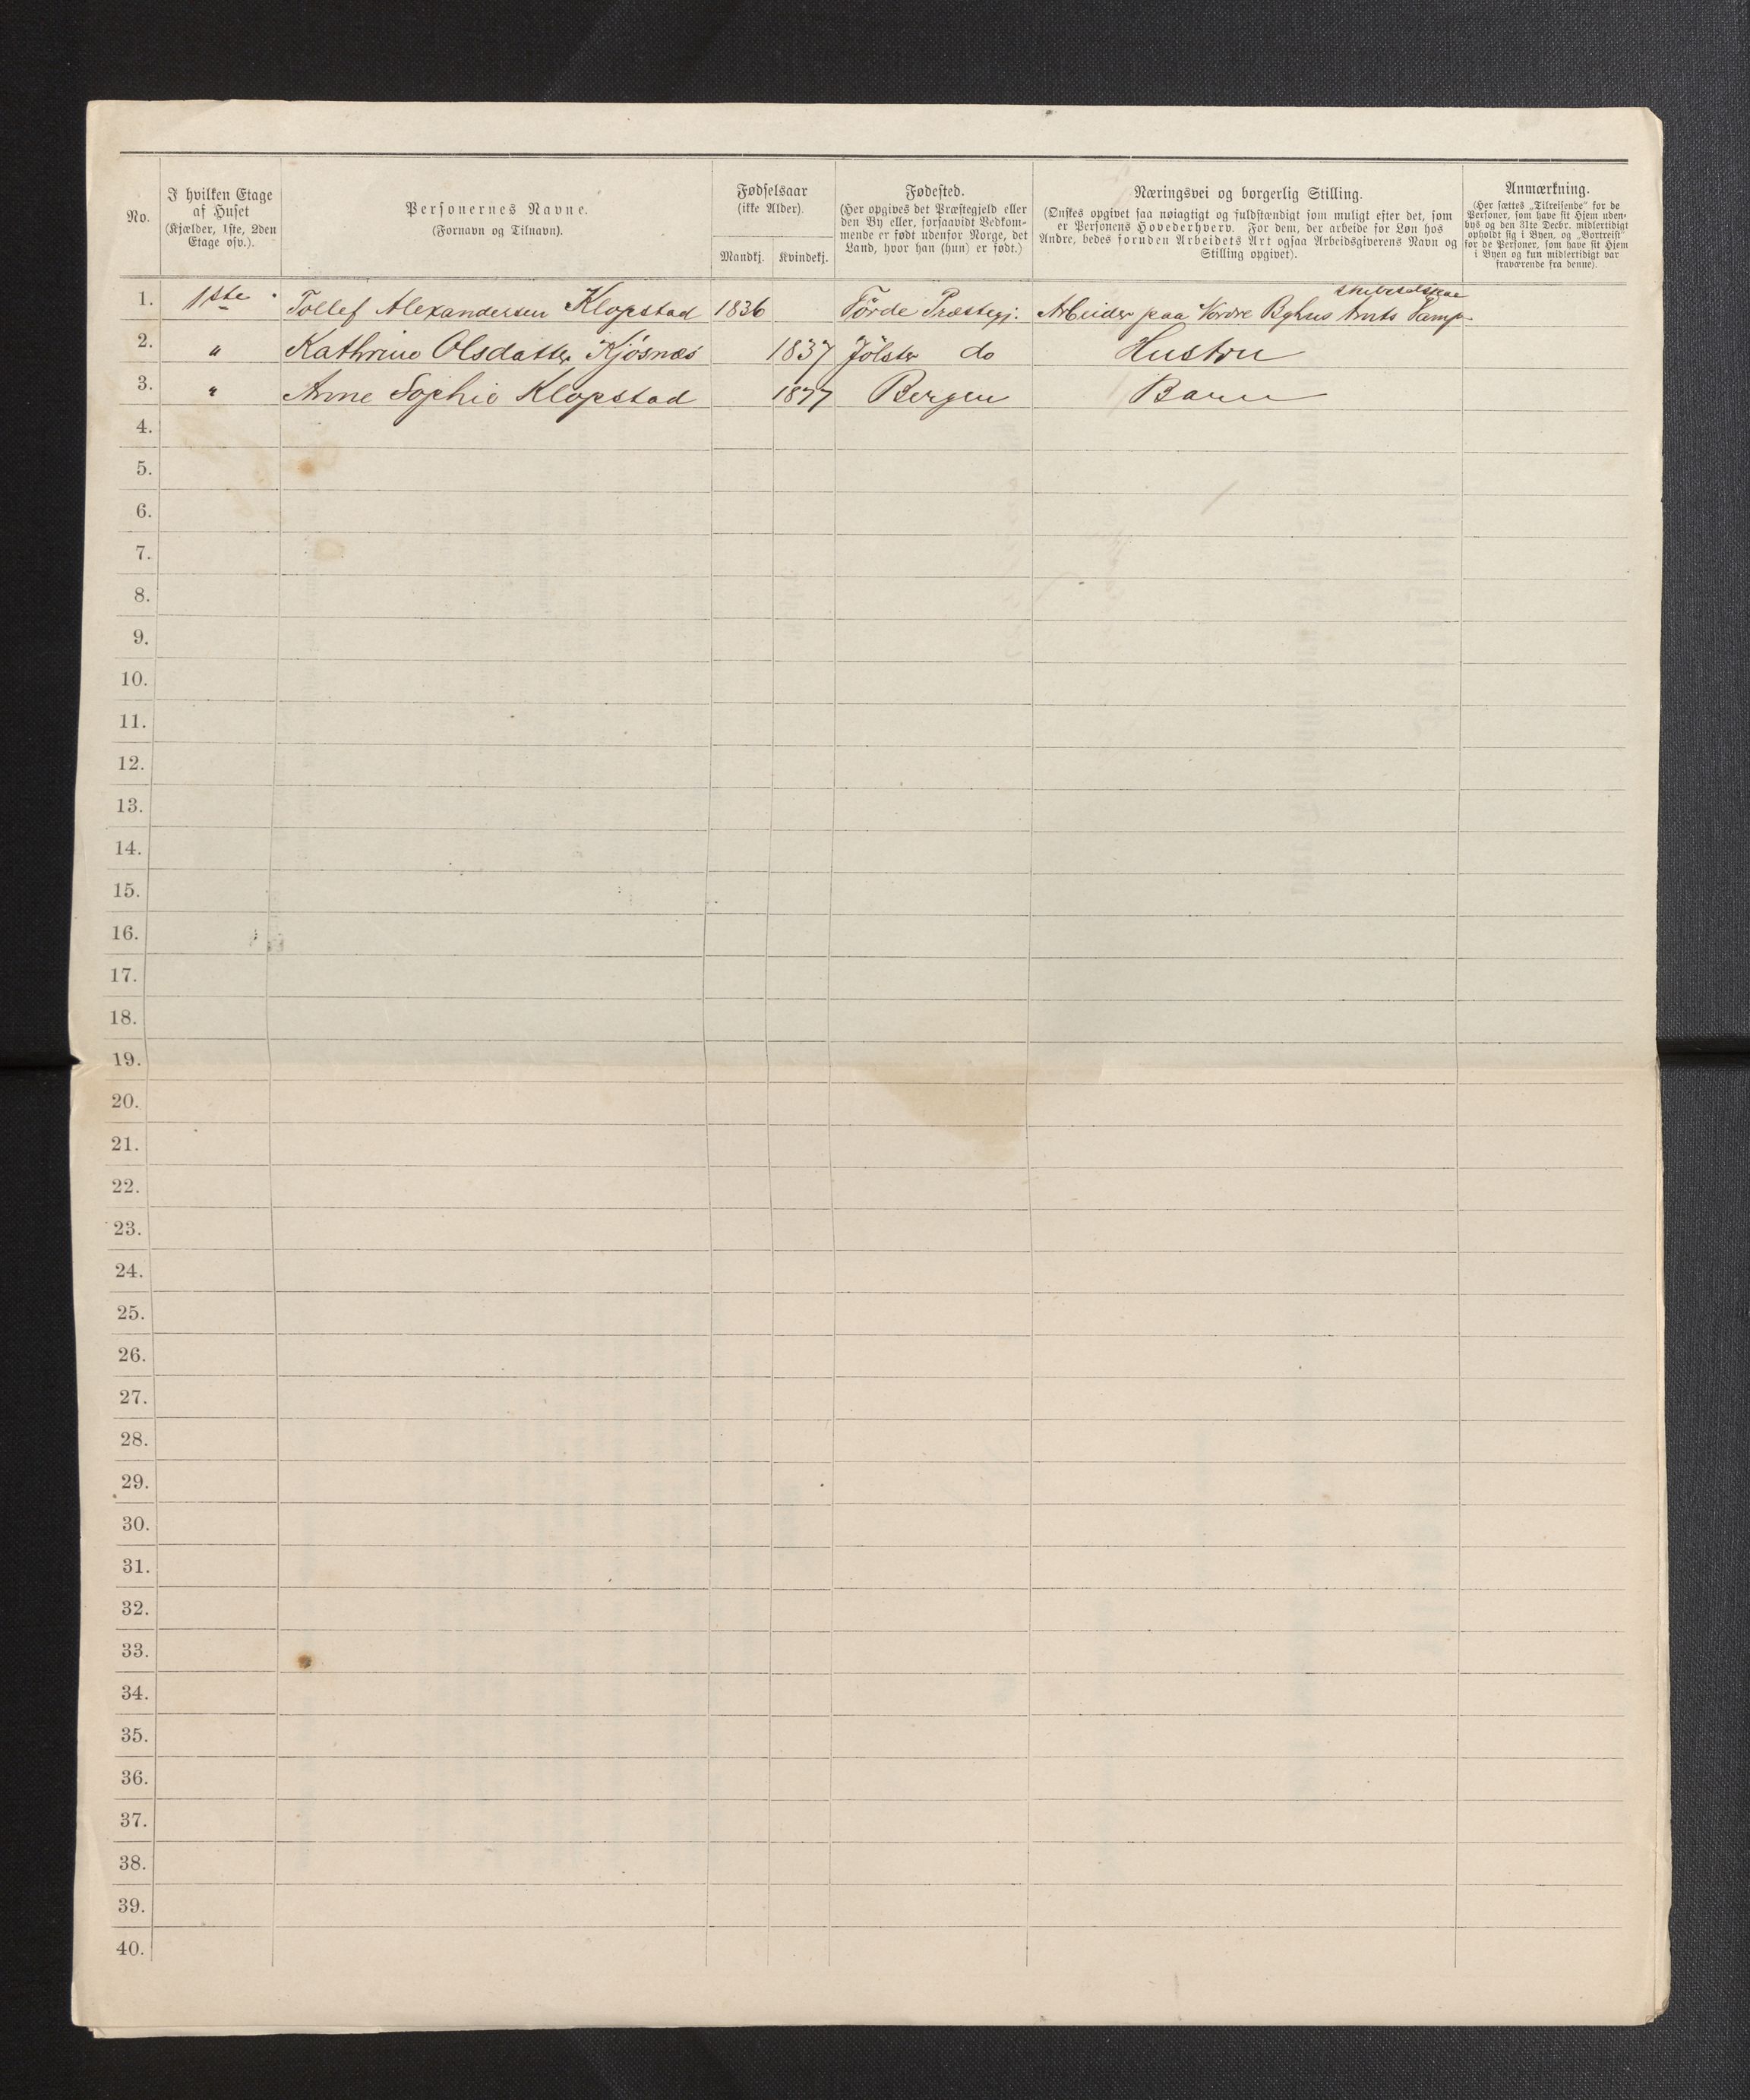 No.
I hvilken Etage
af Huset
(Kjælder, 1ste, 2den
Etage osv.).
Personernes Navne.
(Fornavn og Tilnavn).
Fødselsaar
(ikke Alder).
Mandkj. Kvindekj.
Fødested.
(Her opgives det Præstegjeld eller
den By eller, forsaavidt Vedkom-
mende er født udenfor Norge, det
Land, hvor han (hun) er født.)
Næringsvei og borgerlig Stilling.
(Ønskes opgivet saa nøiagtigt og fuldstændigt som muligt efter det, som
er Personens Hovederhverv. For dem, der arbeide for Løn hos
Andre, bedes foruden Arbeidets Art ogsaa Arbeidsgiverens Navn og
Stilling opgivet).
Anmærkning.
(Her sættes „Tilreisende“ for de
Personer, som have sit Hjem uden-
bys og den 31te Decbr. midlertidigt
opholdt sig i Byen, og „Bortreist“
for de Personer, som have sit Hjem
i Byen og kun midlertidigt var
fraværende fra denne).
1. 1ste Tollef Alexandersen Klopstad 1836 Förde Præstegj. Arbeider paa Nordre Amts
2. " Kathrine Olsdatter Kjösnæs 1837 Jölster do Hustru
3. " Anne Sophie Klopstad 1877 Bergen Barn
4.
5.
6.
7.
8.
9.
10.
11.
12.
13.
14.
15.
16.
17.
18.
19.
20.
21.
22.
23.
24.
25.
26.
27.
28.
29.
30.
31.
32.
33.
34.
35.
36.
37.
38.
39.
40.